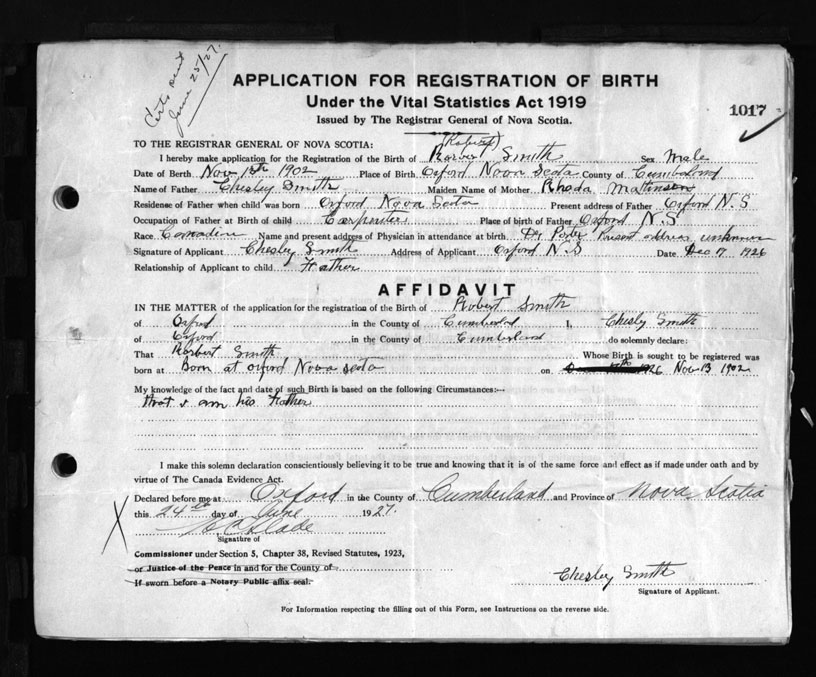 Certs sent
June 25/27.
APPLICATION FOR REGISTRATION OF BIRTH
Under the Vital Statistics Act 1919
Issued by The Registrar General of Nova Scotia.
1017
TO THE REGISTRAR GENERAL OF NOVA SCOTIA:
(Robert)
I hereby make application for the Registration of the Birth of Smith Sex Male
Date of Birth Nov 13th 1902 Place of Birth Oxford Nova Scota County of Cumberland
Name of Father Chesley Smith Maiden Name of Mother Rhoda Mattinson
Residence of Father when child was born Oxford Nova Scota Present address of Father Oxford N.S
Occupation of Father at Birth of child Carpenter Place of birth of Father Oxford N.S
Race Canadian Name and present address of Physician in attendance at birth. Dr Porter Present address unknown
Signature of Applicant Chesley Smith Address of Applicant Oxford N S Date Dec 7 1926
Relationship of Applicant to child Father
AFFIDAVIT
IN THE MATTER of the application for the registration of the Birth of Robert Smith
of Oxford in the County of Cumberland I, Chesley Smith
of Oxford in the County of Cumberland do solemnly declare:
That Robert Smith Whose Birth is sought to be registered was
born at Born at Oxford Nova Scota on 1926 Nov 13 1902
My knowledge of the fact and date of such Birth is based on the following Circumstances:—
that I am his Father
I make this solemn declaration conscientiously believing it to be true and knowing that it is of the same force and effect as if made under oath and by
virtue of The Canada Evidence Act.
Declared before me at Oxford in the County of Cumberland and Province of Nova Scotia
this 24th day of June 1927.
Slade
Signature of
Commissioner under Section 5, Chapter 38, Revised Statutes, 1923,
or Justice of the Peace in and for the County of
If sworn before a Notary Public affix seal.
Chesley Smith
Signature of Applicant.
For Information respecting the filling out of this Form, see Instructions on the reverse side.